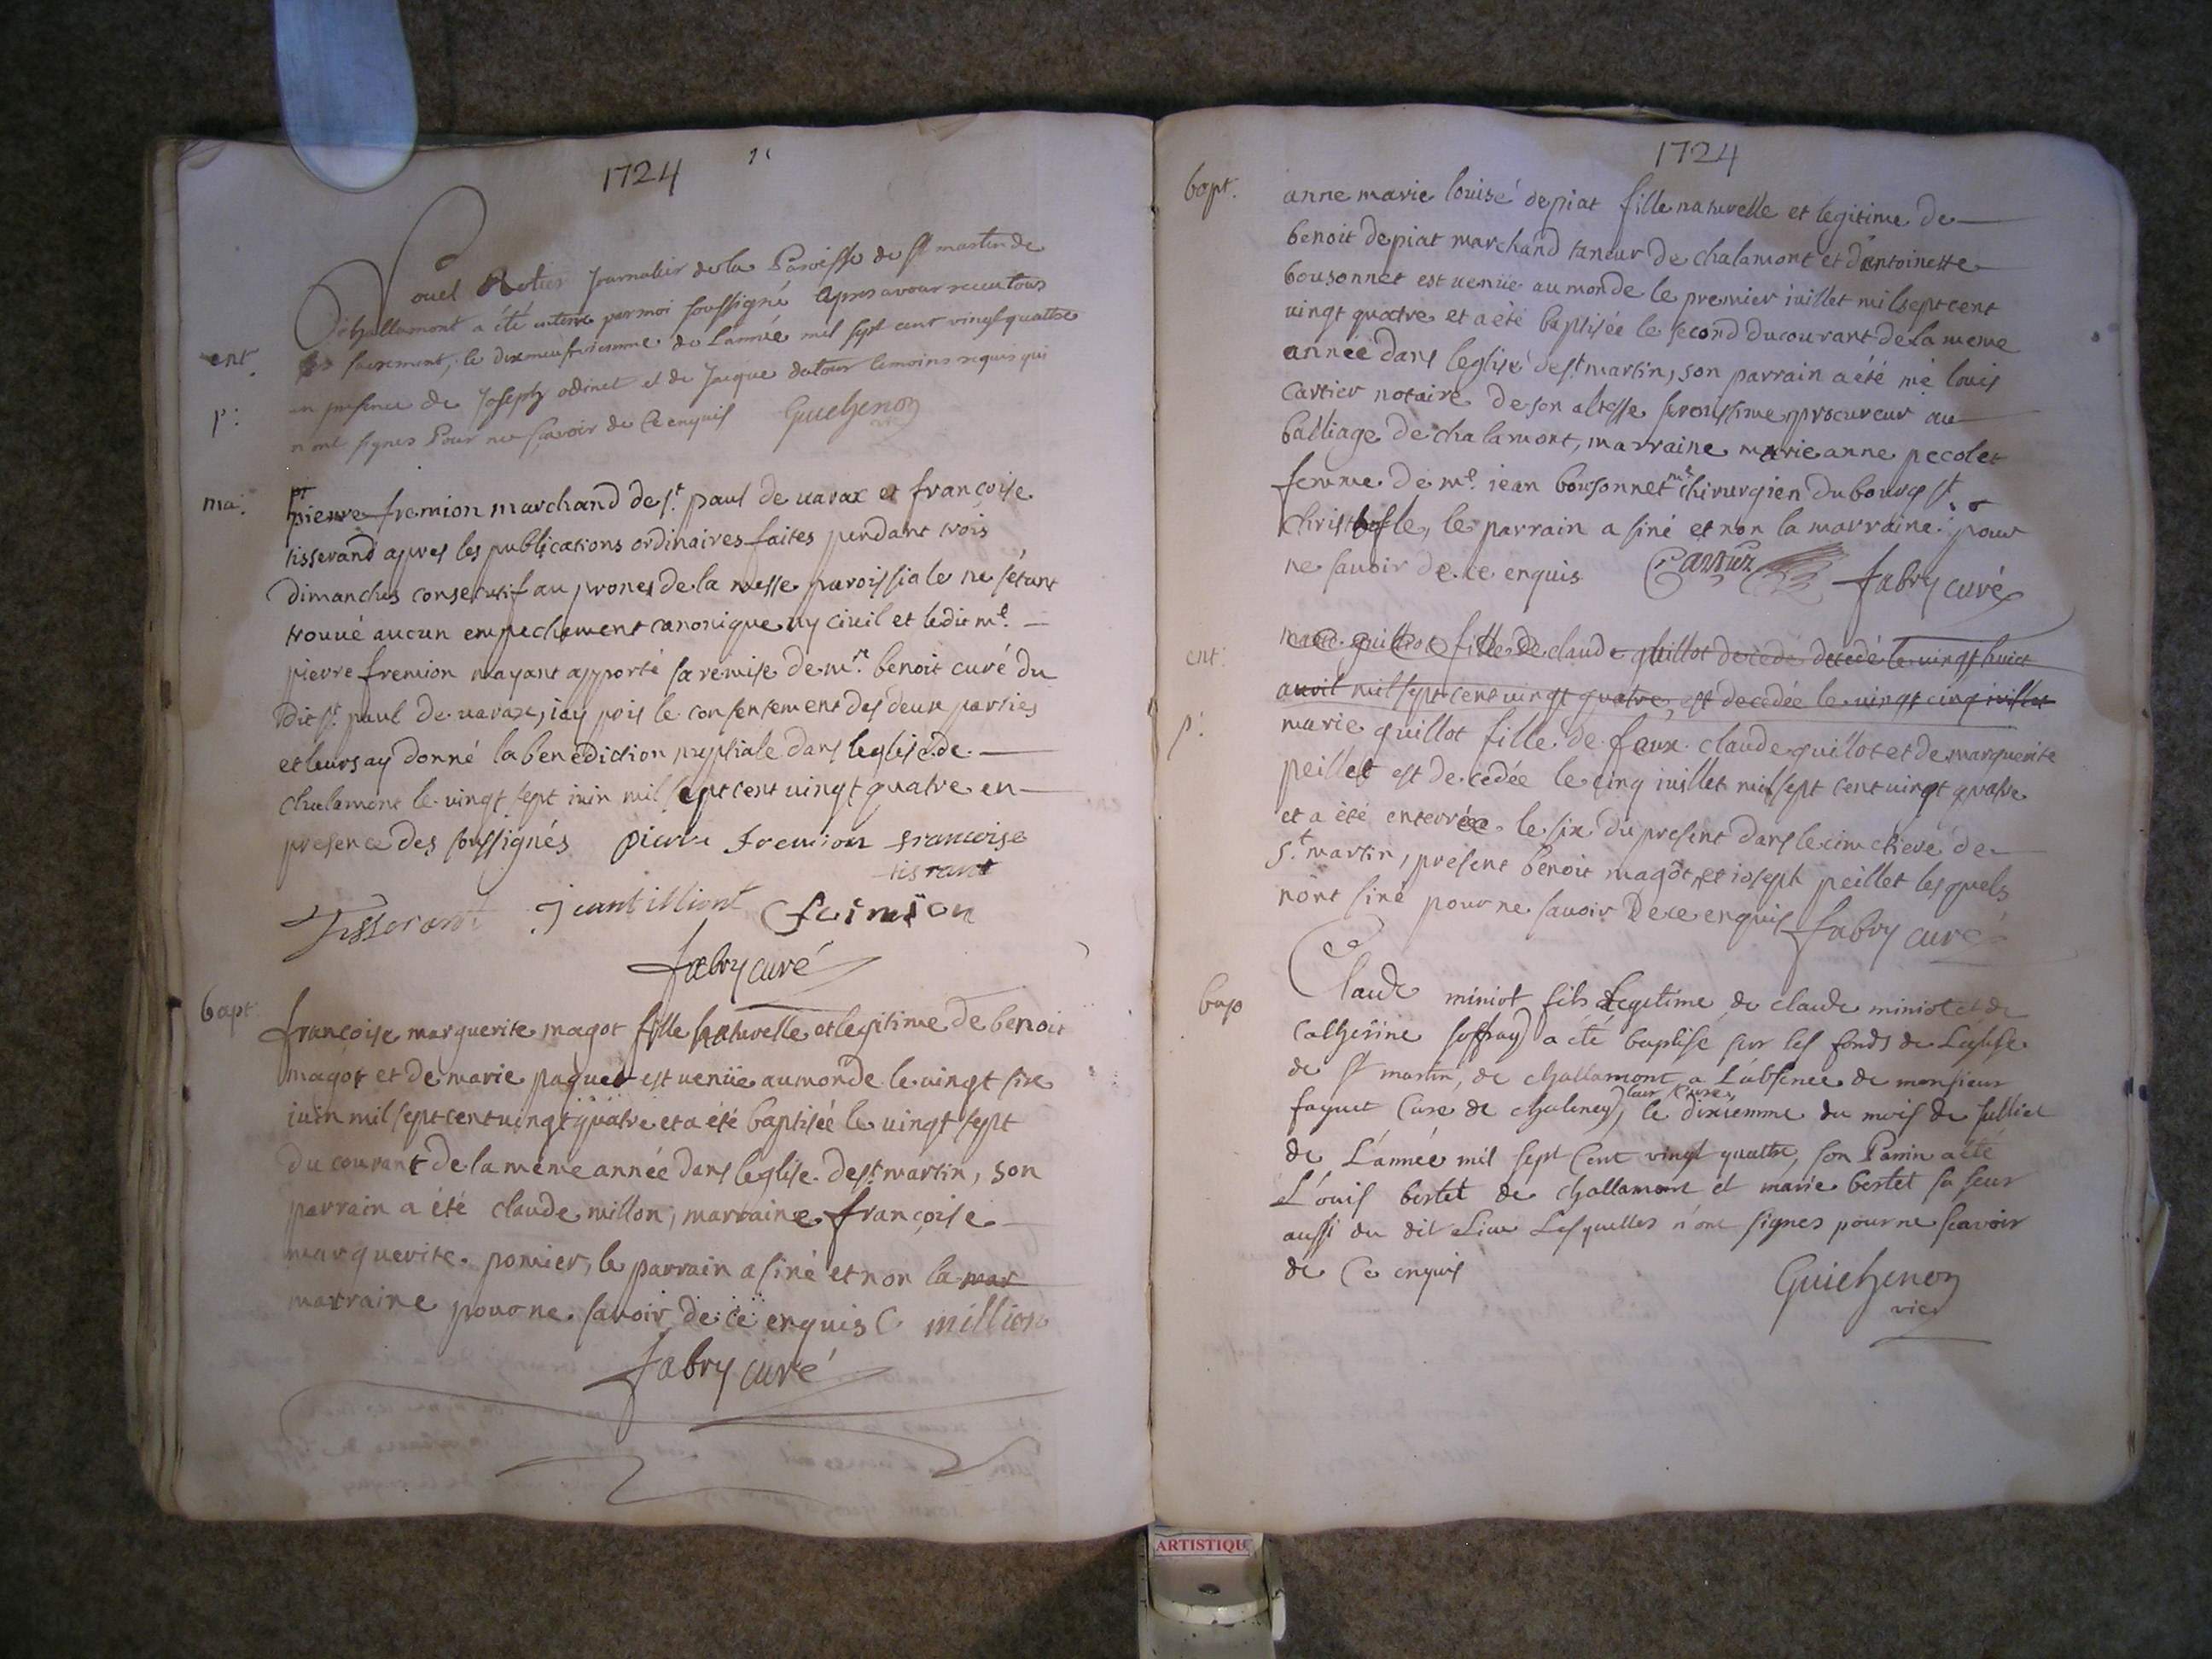 1724
ouel Rotier Journalier de la Paroisse de St martin de
Challamont a été enterre par moi soussigné apres avour receu tous
ent. sacrement, le dixneufviemme de L'année mil sept cent vingt quattre
en presence de Joseph odinet et de Jacque dutour temoins requis qui
p: n'ont signes Pour ne sçavoir de Ce enquis Guichenon
ma: pierre fremion marchand de st. paul de varax et françoise
tisserand apres les publications ordinaires faites pendant trois
dimanches consecutif au prones de la messe paroissiale ne s'étant
trouué aucun empechement canonique ny ciuil et ledit me. —
pierre fremion mayant apporté sa remise de mre. benoit curé du
dit st. paul de varax, iay pris le consentement des deux parties
et leurs ay donné la benediction nuptiale dans leglise de —
chalamont le uingt sept iuin mil sept cent uingt quatre en —
presence des soussignés pierre fremion francoise
tisrant
Tisserant Jeantilliont freimion
fabry curé
bapt francoise marguerite magot fille naturelle et legitime de benoit
magot et de marie paquet est venüe au monde le uingt six
iuin mil sept cent uingt quatre et a été baptisée le uingt sept
du courant de la même année dans leglise de st. martin, son
parrain a été claude millon, marraine françoise —
marguerite pomier, le parrain a siné et non la mar
marraine pour ne savoir de ce enquis C million
fabry curé
1724
bapt. anne marie louise depiat fille naturelle et legitime de —
benoit depiat marchand taneur de chalamont et d'antoinette
bousonnet est uenüe au monde le premier iuillet mil sept cent
uingt quatre et a été baptisée le second du courant de la meme
année dans leglise de st. martin, son parrain a été me louis
cartier notaire de son altesse serenissime procureur au —
balliage de chalamont, marraine marie anne pecolet
femme de me. iean bousonnet me chirurgien du bourg st.
christofle, le parrain a siné et non la marraine pour
ne sauoir de ce enquis Cartier fabry curé
ent: marie guillot fille de claude guillot decedé decedé le uingt huict
auril mil sept cent uingt quatre, est decedée le uingt cinq iuillet
p: marie guillot fille de feux claude guillot et de marguerite
peillet est decedée le cinq iuillet mil sept cent uingt quatre
et a été enterrée le six du present dans le cimetiere de —
st. martin, present benoit magot et ioseph peillet lesquels
nont siné pour ne sauoir de ce enquis fabry curé
bap Claude miniot fils Legitime de claude miniot et de
Catherine soffray a été baptise sur les fonds de L'eglise
de St martin, de challamont a L'absence de monsieur
faquet Cure de chateney, le dixiemme du mois de Julliet
de L'année mil sept Cent vingt quattre, son Parrin a été
L'ouis bertet de challamont et marie bertet sa seur
aussi du dit Lieu Lesquelles n'ont signes pour ne scavoir
de Ce enquis Guichenon
vic
ARTISTIQU